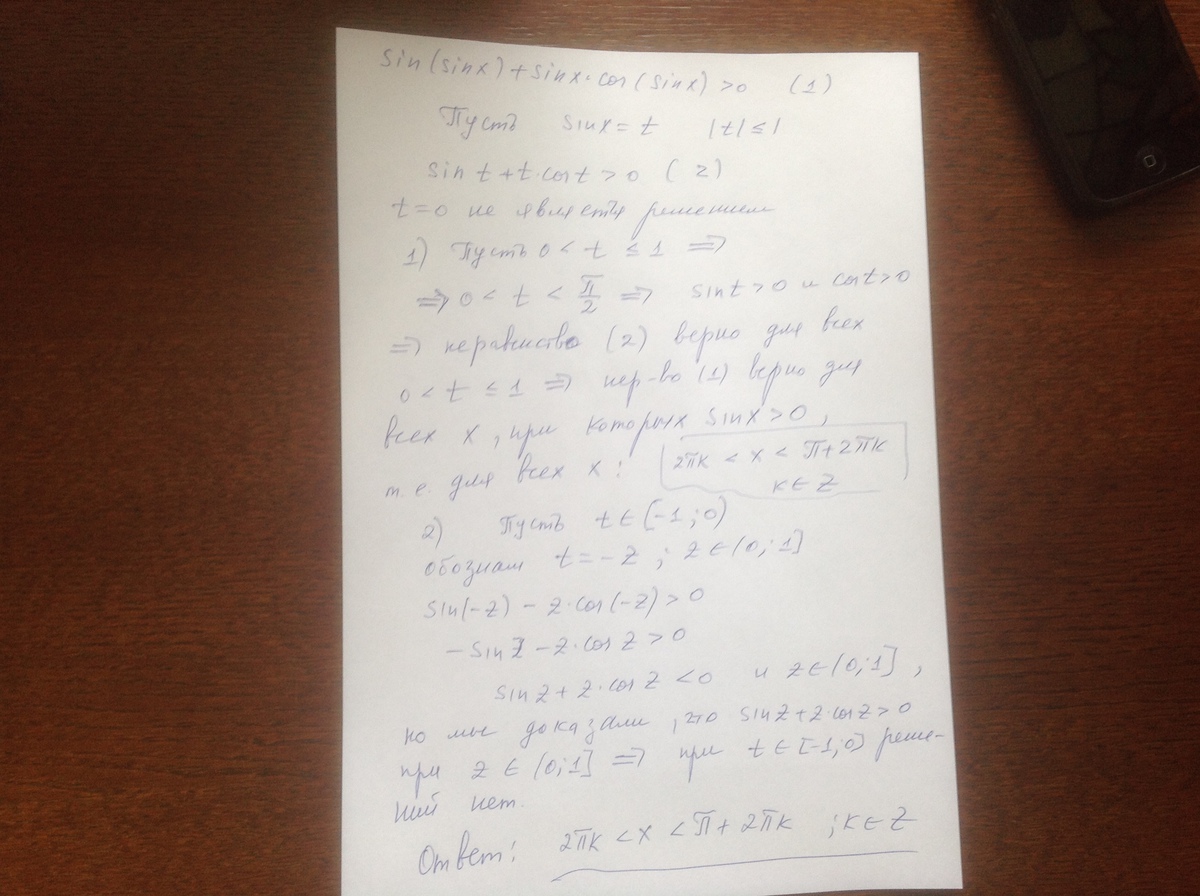 sin(sinx)+sinx·cos(sinx)>0 (1)
Пусть sinx=t |t|≤1
sin t+t·cost>0 (2)
t=0 не является решением
1) Пусть 0<t≤1 ⇒
⇒ 0<t<π/2 ⇒ sint>0 и cost>0
⇒ неравенство (2) верно для всех
0<t≤1 ⇒ нер-во (1) верно для
всех x, при которых sinx>0,
т.е. для всех x: 2πk<x<π+2πk
k∈Z
2) Пусть t∈[-1;0)
обознач t=-z; z∈(0;1]
sin(-z)-z·cos(-z)>0
-sinz-z·cosz>0
sinz+z·cosz<0 и z∈(0;1],
но мы доказали, что sinz+z·cosz>0
при z∈(0;1] ⇒ при t∈[-1;0) реше-
ний нет.
Ответ: 2πk<x<π+2πk ; k∈Z